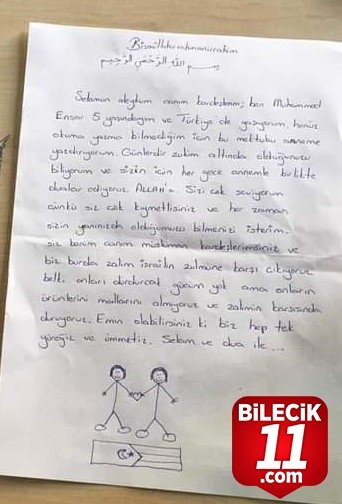 Bismillahirrahmanirrahim
بسم الله الرَّحْمَنِ الرَّحِيم
Selamun aleyküm canım kardeşlerim; ben Muhammed
Ensar 5 yaşındayım ve Türkiye'de yaşıyorum, henüz
okuma yazma bilmediğim için bu mektubu anneme
yazdırıyorum. Günlerdir zulüm altında olduğunuzu
biliyorum ve sizin için her gece annemle birlikte
dualar ediyoruz ALLAH'a. Sizi çok seviyorum
çünkü siz çok kıymetlisiniz ve her zaman
sizin yanınızda olduğumuzu bilmenizi isterim.
siz benim canım müslüman kardeşlerimsiniz ve
biz burda zalim israilin zulmüne karşı çıkıyoruz
belki onları durduracak gücüm yok ama onların
ürünlerini mallarını almıyoruz ve zalimin karşısında
duruyoruz. Emin olabilirsiniz ki biz hep tek
yüreğiz ve ümmetiz. Selam ve dua ile....
BiLECiK
11
.com